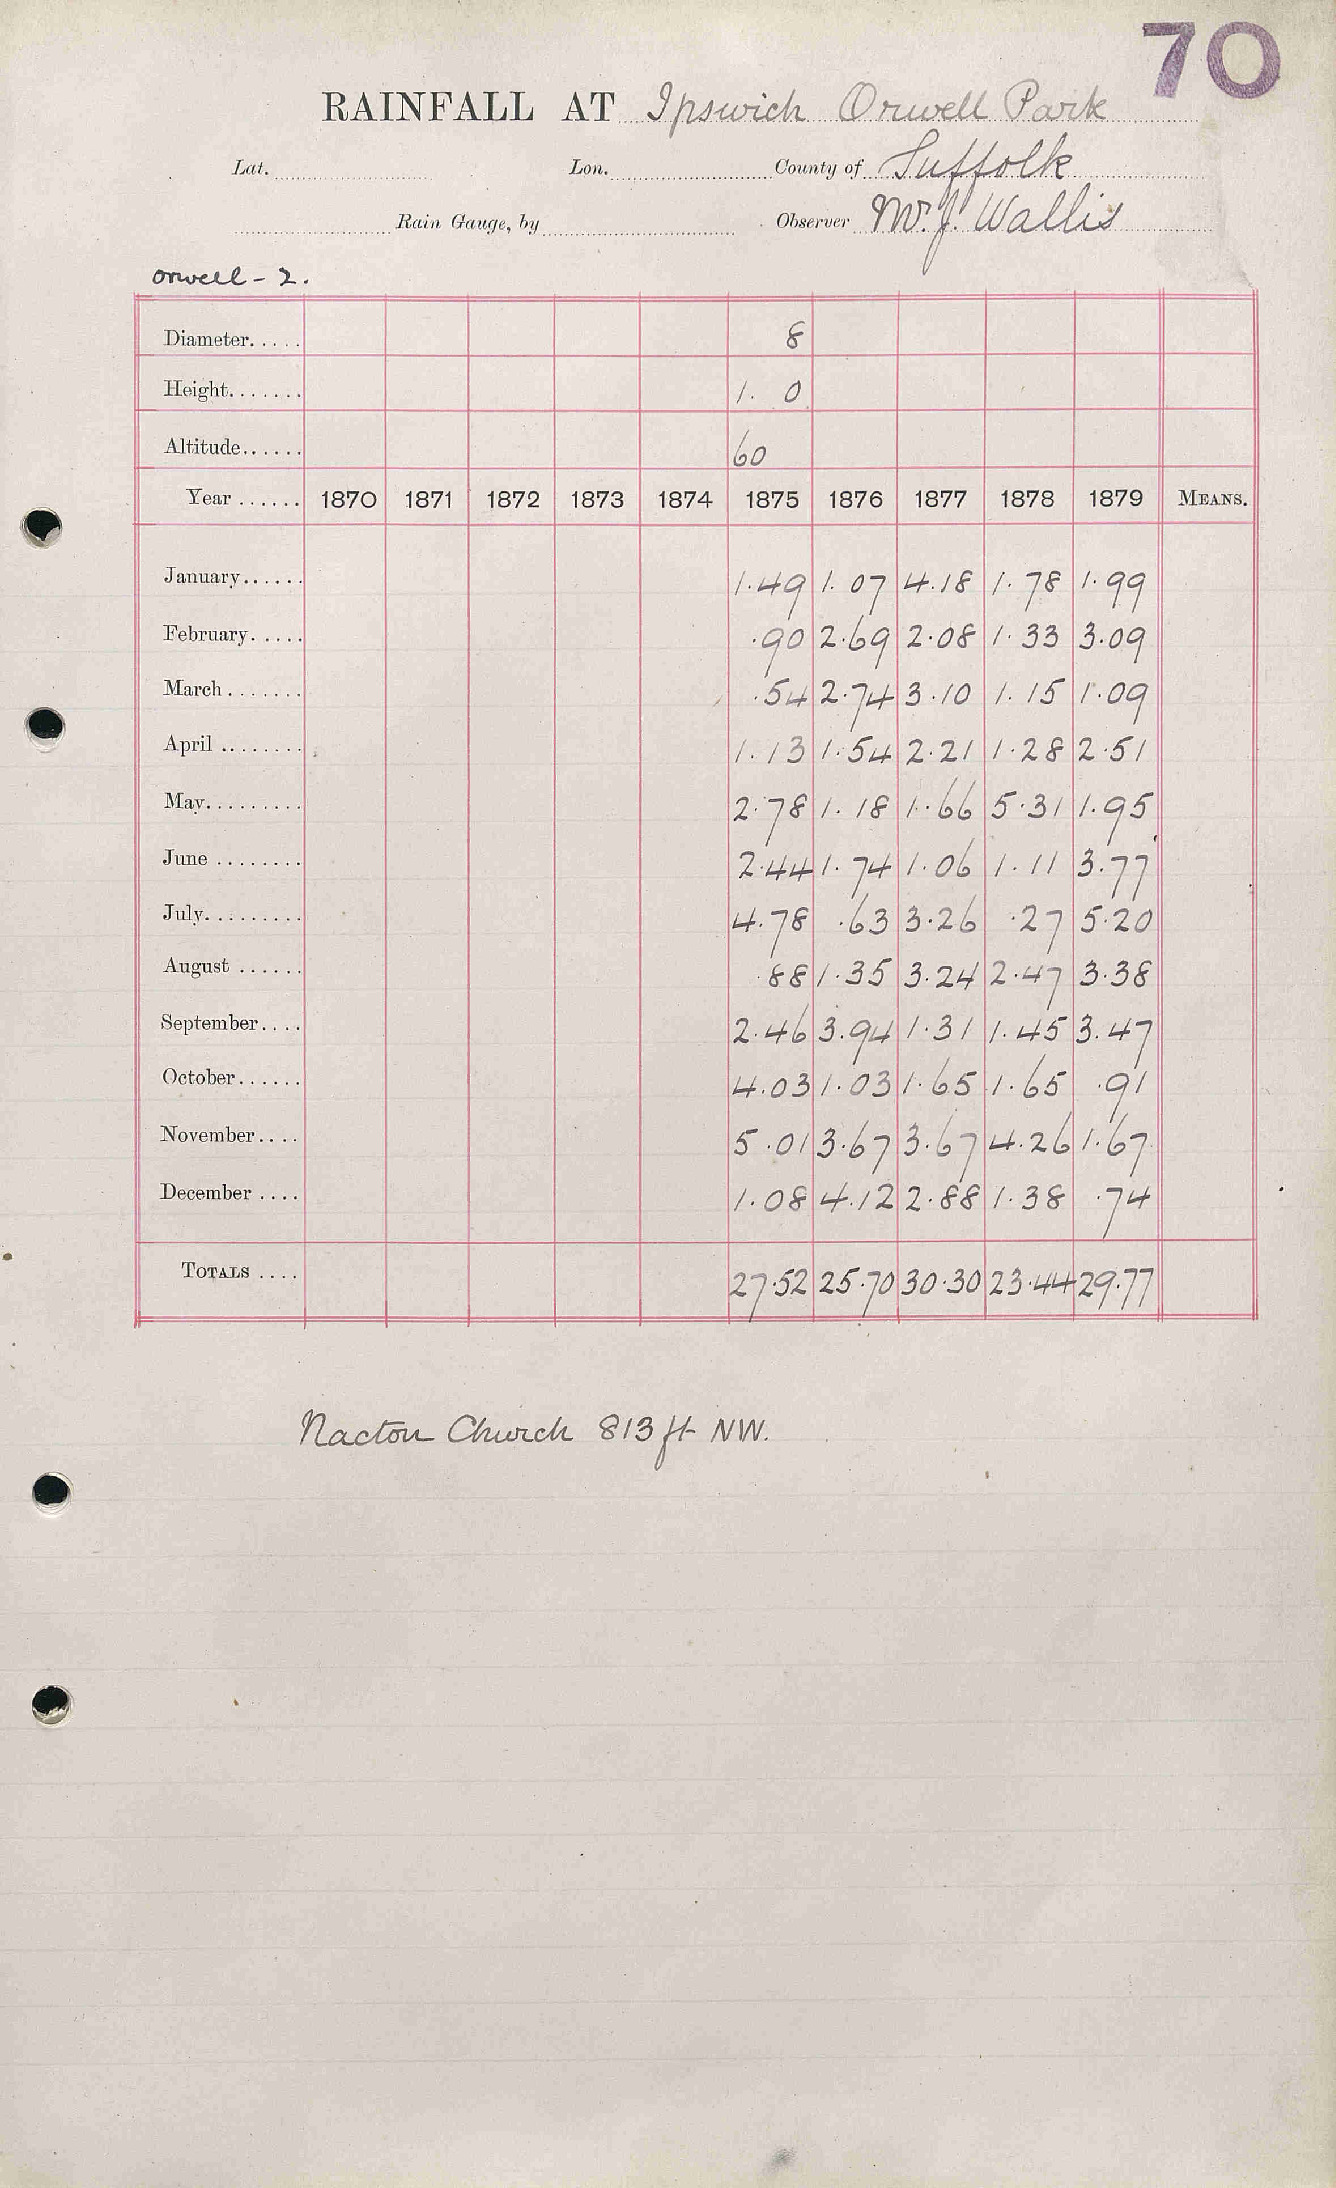 70
RAINFALL AT Ipswich Orwell Park
Lat. Lon. County of Suffolk
Rain Gauge, by Observer Mr. J. Wallis
Orwell - 2.
Diameter..... 8
Height....... 1. 0
Altitude...... 60
Year ...... 1870 1871 1872 1873 1874 1875 1876 1877 1878 1879 MEANS.
January...... 1.49 1.07 4.18 1.78 1.99
February..... .90 2.69 2.08 1.33 3.09
March....... .54 2.74 3.10 1.15 1.09
April ........ 1.13 1.54 2.21 1.28 2.51
May......... 2.78 1.18 1.66 5.31 1.95
June ........ 2.44 1.74 1.06 1.11 3.77
July......... 4.78 .63 3.26 .27 5.20
August ...... .88 1.35 3.24 2.47 3.38
September.... 2.46 3.94 1.31 1.45 3.47
October...... 4.03 1.03 1.65 1.65 .91
November.... 5.01 3.67 3.67 4.26 1.67
December .... 1.08 4.12 2.88 1.38 .74
TOTALS .... 27.52 25.70 30.30 23.44 29.77
Nacton Church 813 ft NW.